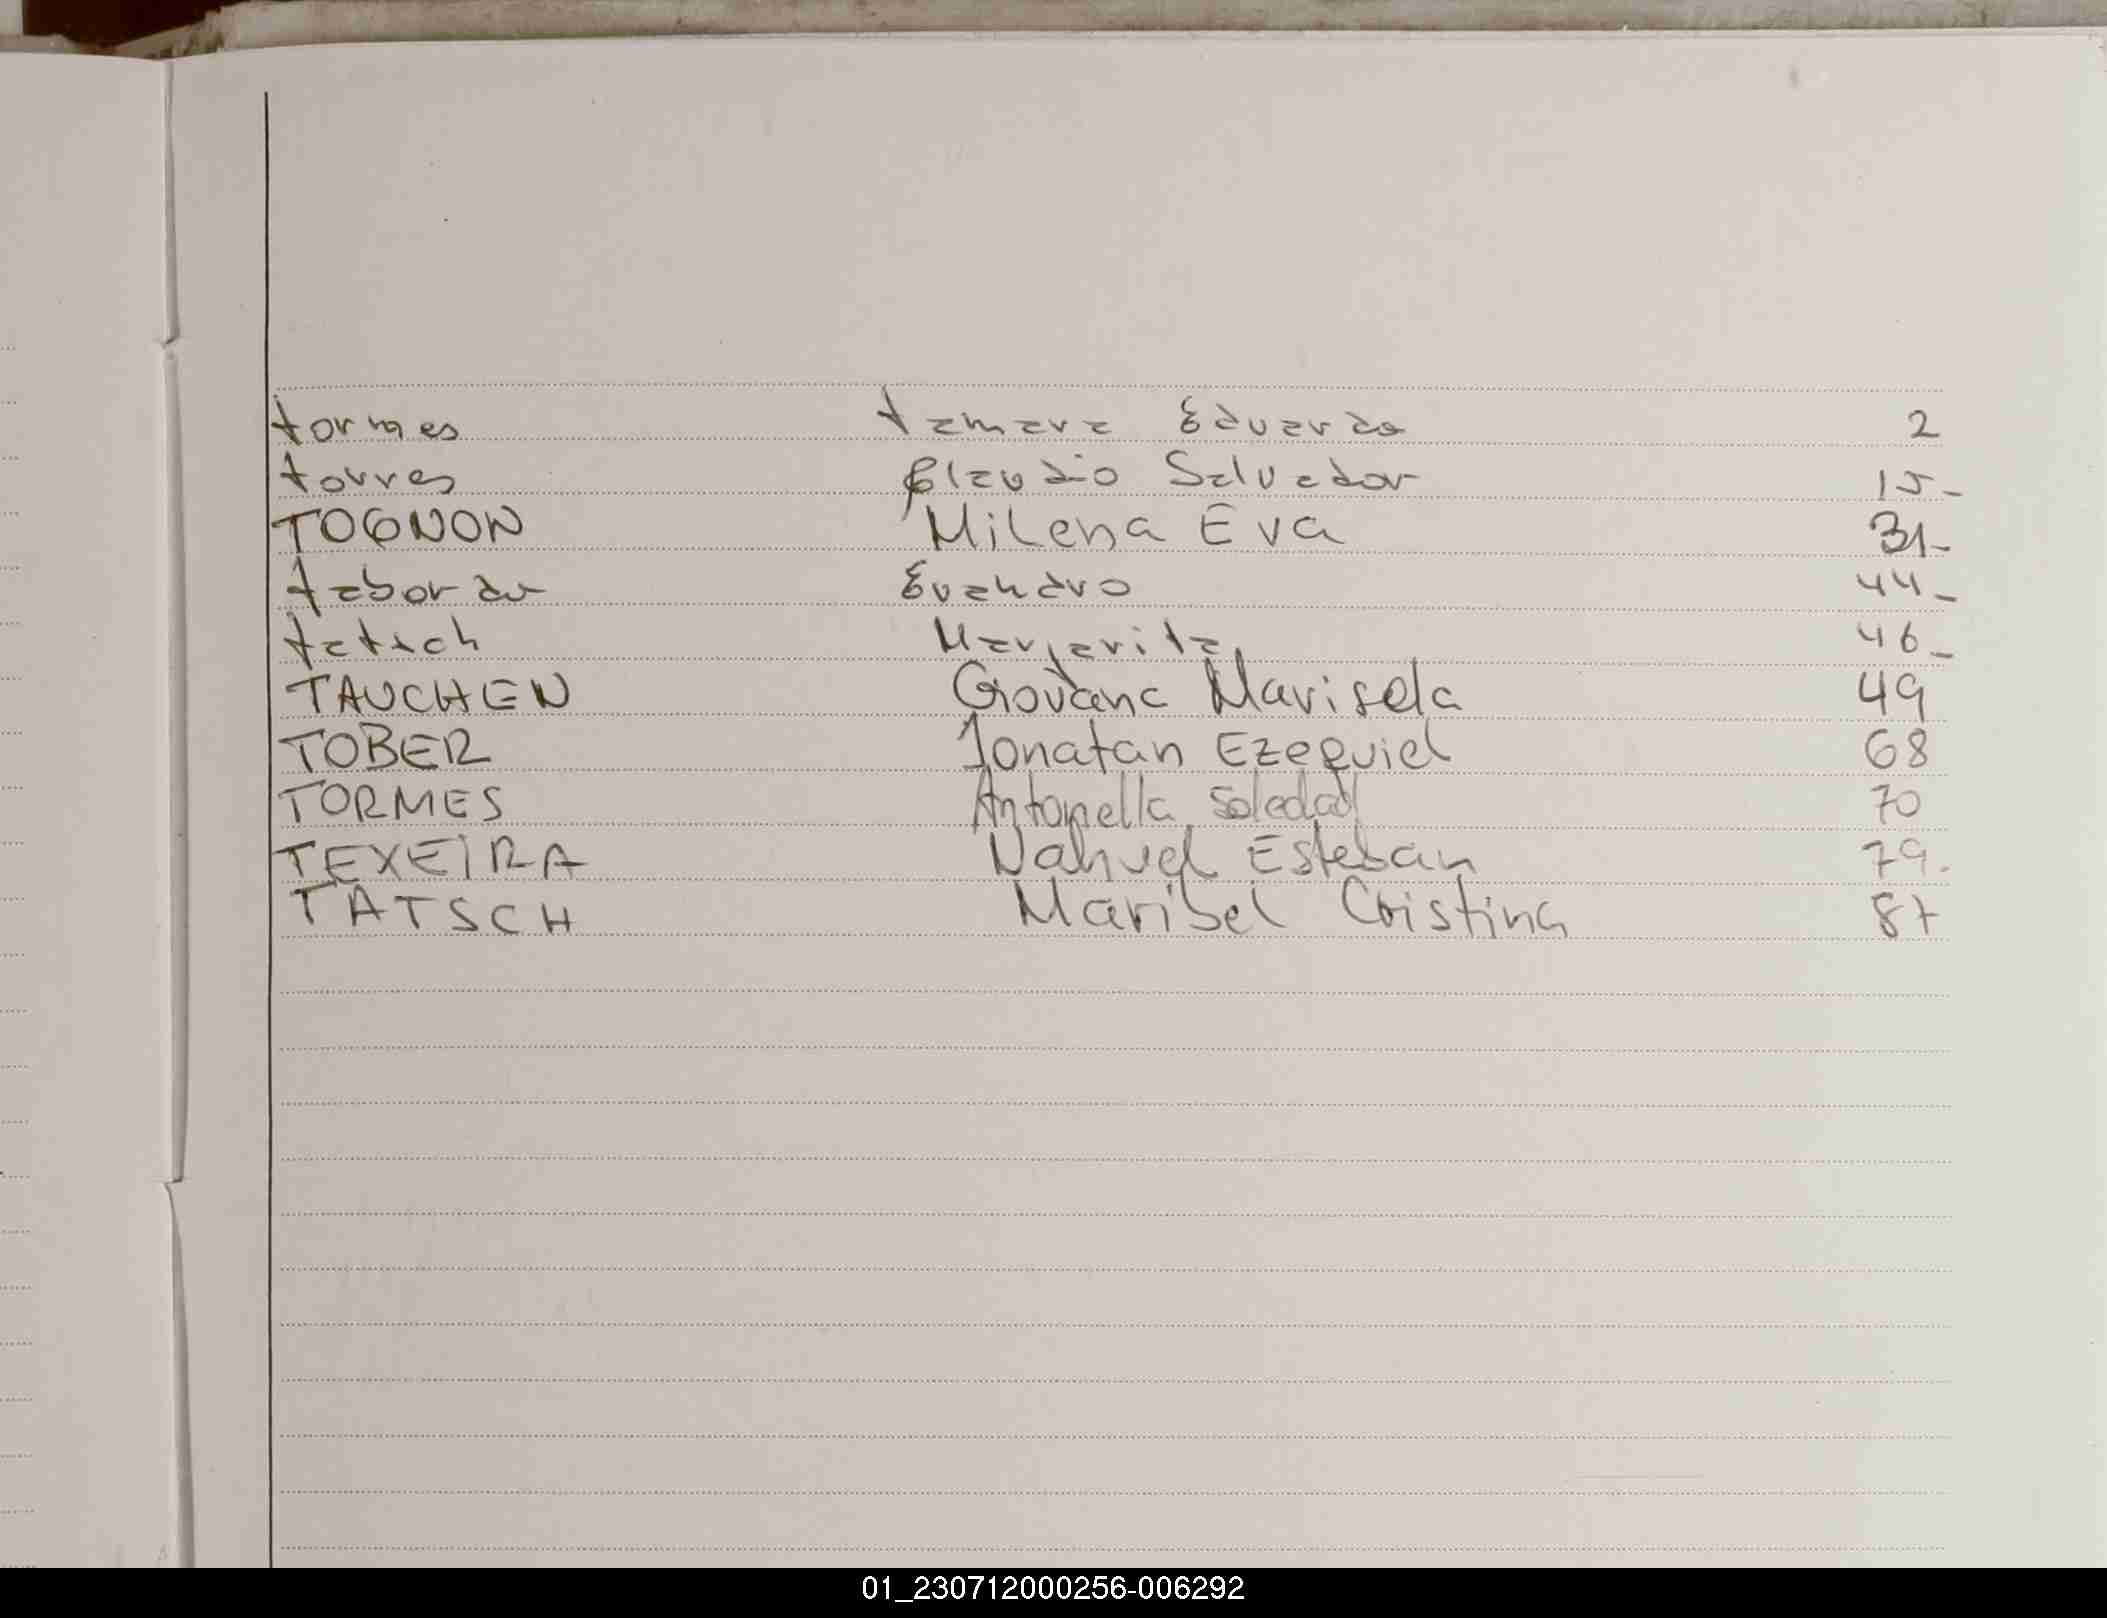 tormes tamara Eduarda 2
torres Claudio Salvador 15-
TOGNON Milena Eva 31-
taborda Evandro 44-
tatsch Margarita 46-
TAUCHEN Giovana Marisela 49
TOBER Jonatan Ezequiel 68
TORMES Antonella Soledad 70
TEXEIRA Nahuel Esteban 79.
TATSCH Maribel Cristina 87
01_230712000256-006292